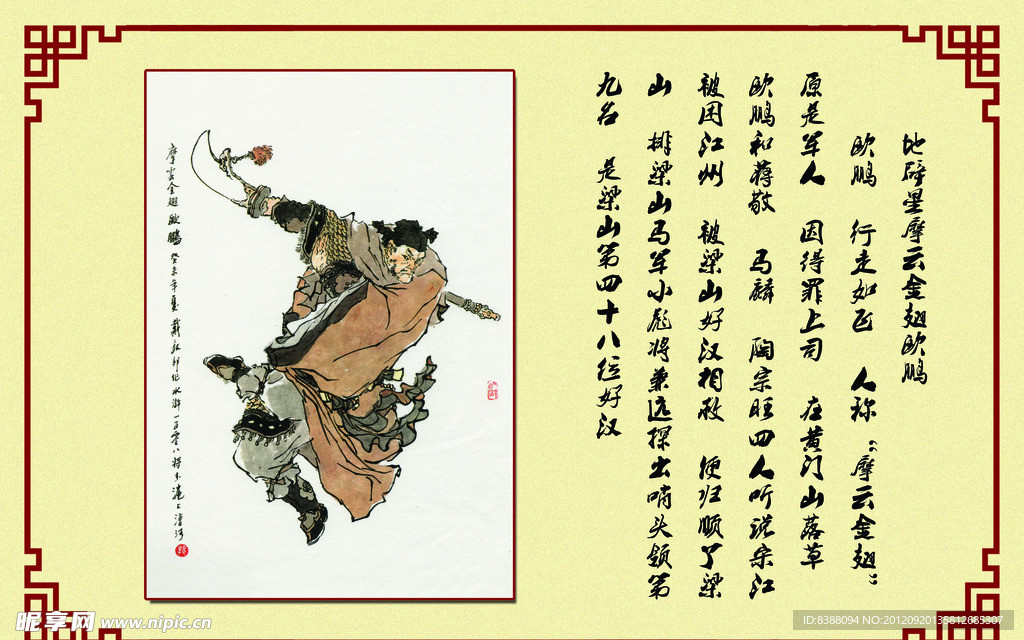 地辟星摩云金翅欧鹏
欧鹏 行走如飞 人称“摩云金翅”
原是军人 因得罪上司 在黄门山落草
欧鹏和蒋敬 马麟 陶宗旺四人听说宋江
被困江州 被梁山好汉相救 便归顺了梁
山 排梁山马军小彪将兼远探出哨头领第
九名 是梁山第四十八位好汉
摩云金翅 欧鹏 癸未年夏 戴敦邦作水浒一百零八将
昵享网 www.nipic.cn
ID:8388094 NO:20120920135812685307